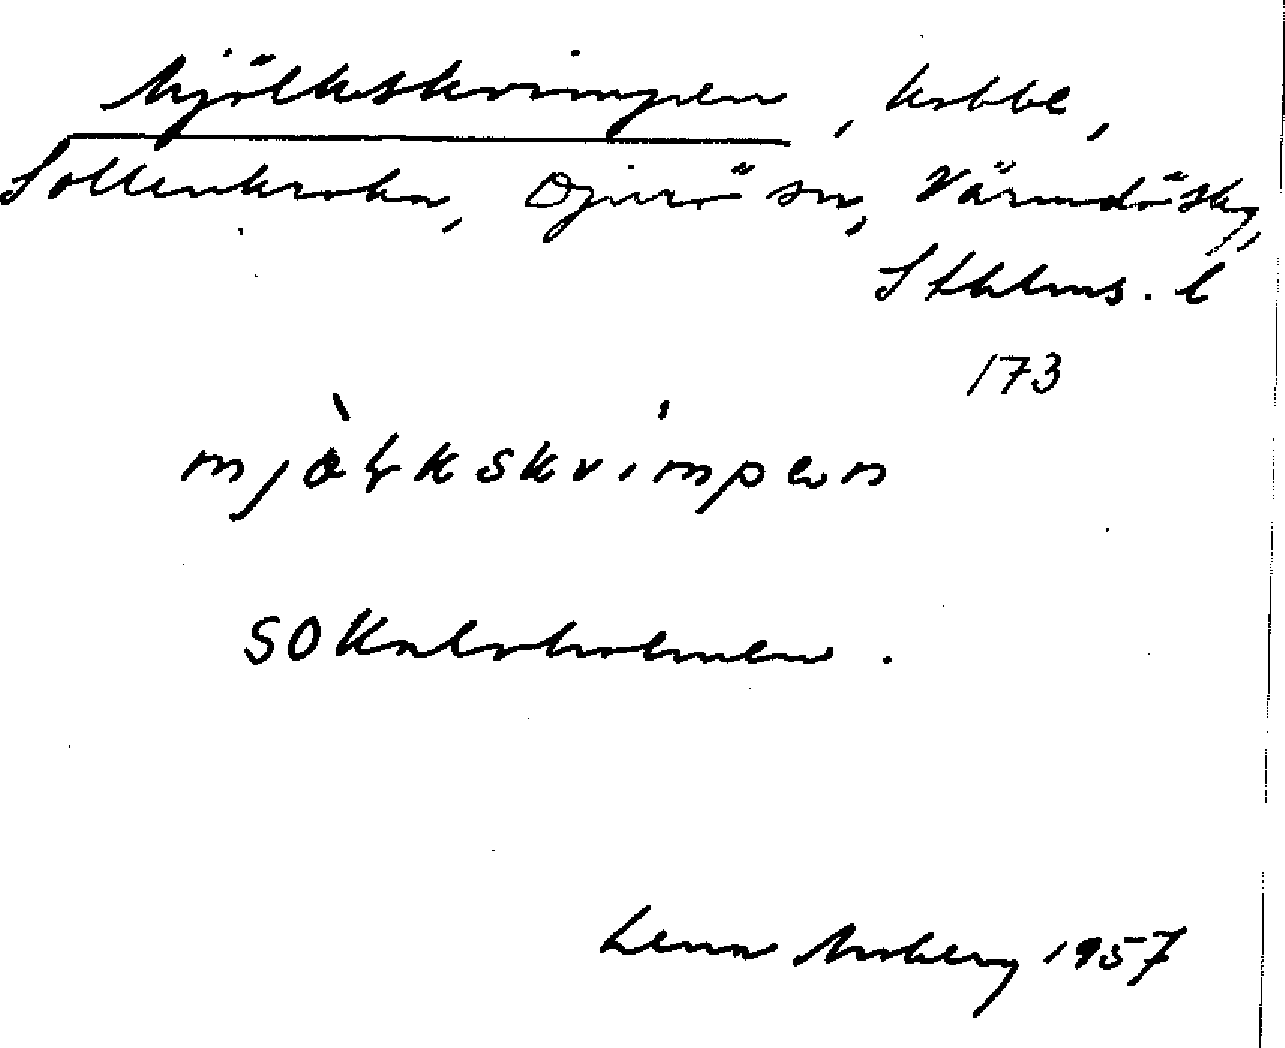 Mjölkskvimpen, kobbe,
Sollenkroka, Djurö sn, Värmdö skg,
Sthlms. l
173
mjòłkskvimpen
SO Kalvholmen.
Lena Moberg 1957